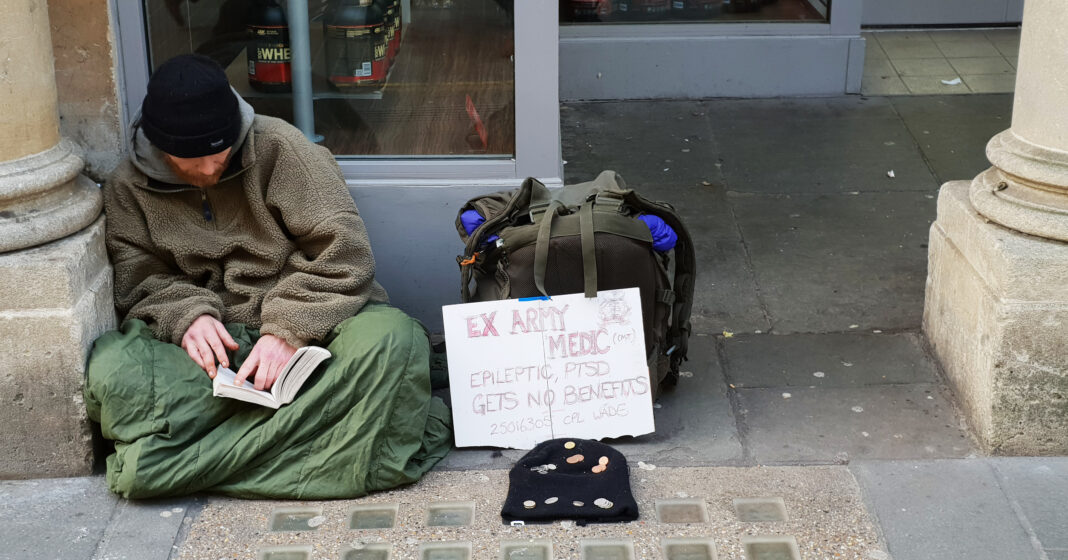 WHE
WHE
EX ARMY
MEDIC (CMT)
EPILEPTIC, PTSD
GETS NO BENEFITS
25016303 CPL WADE